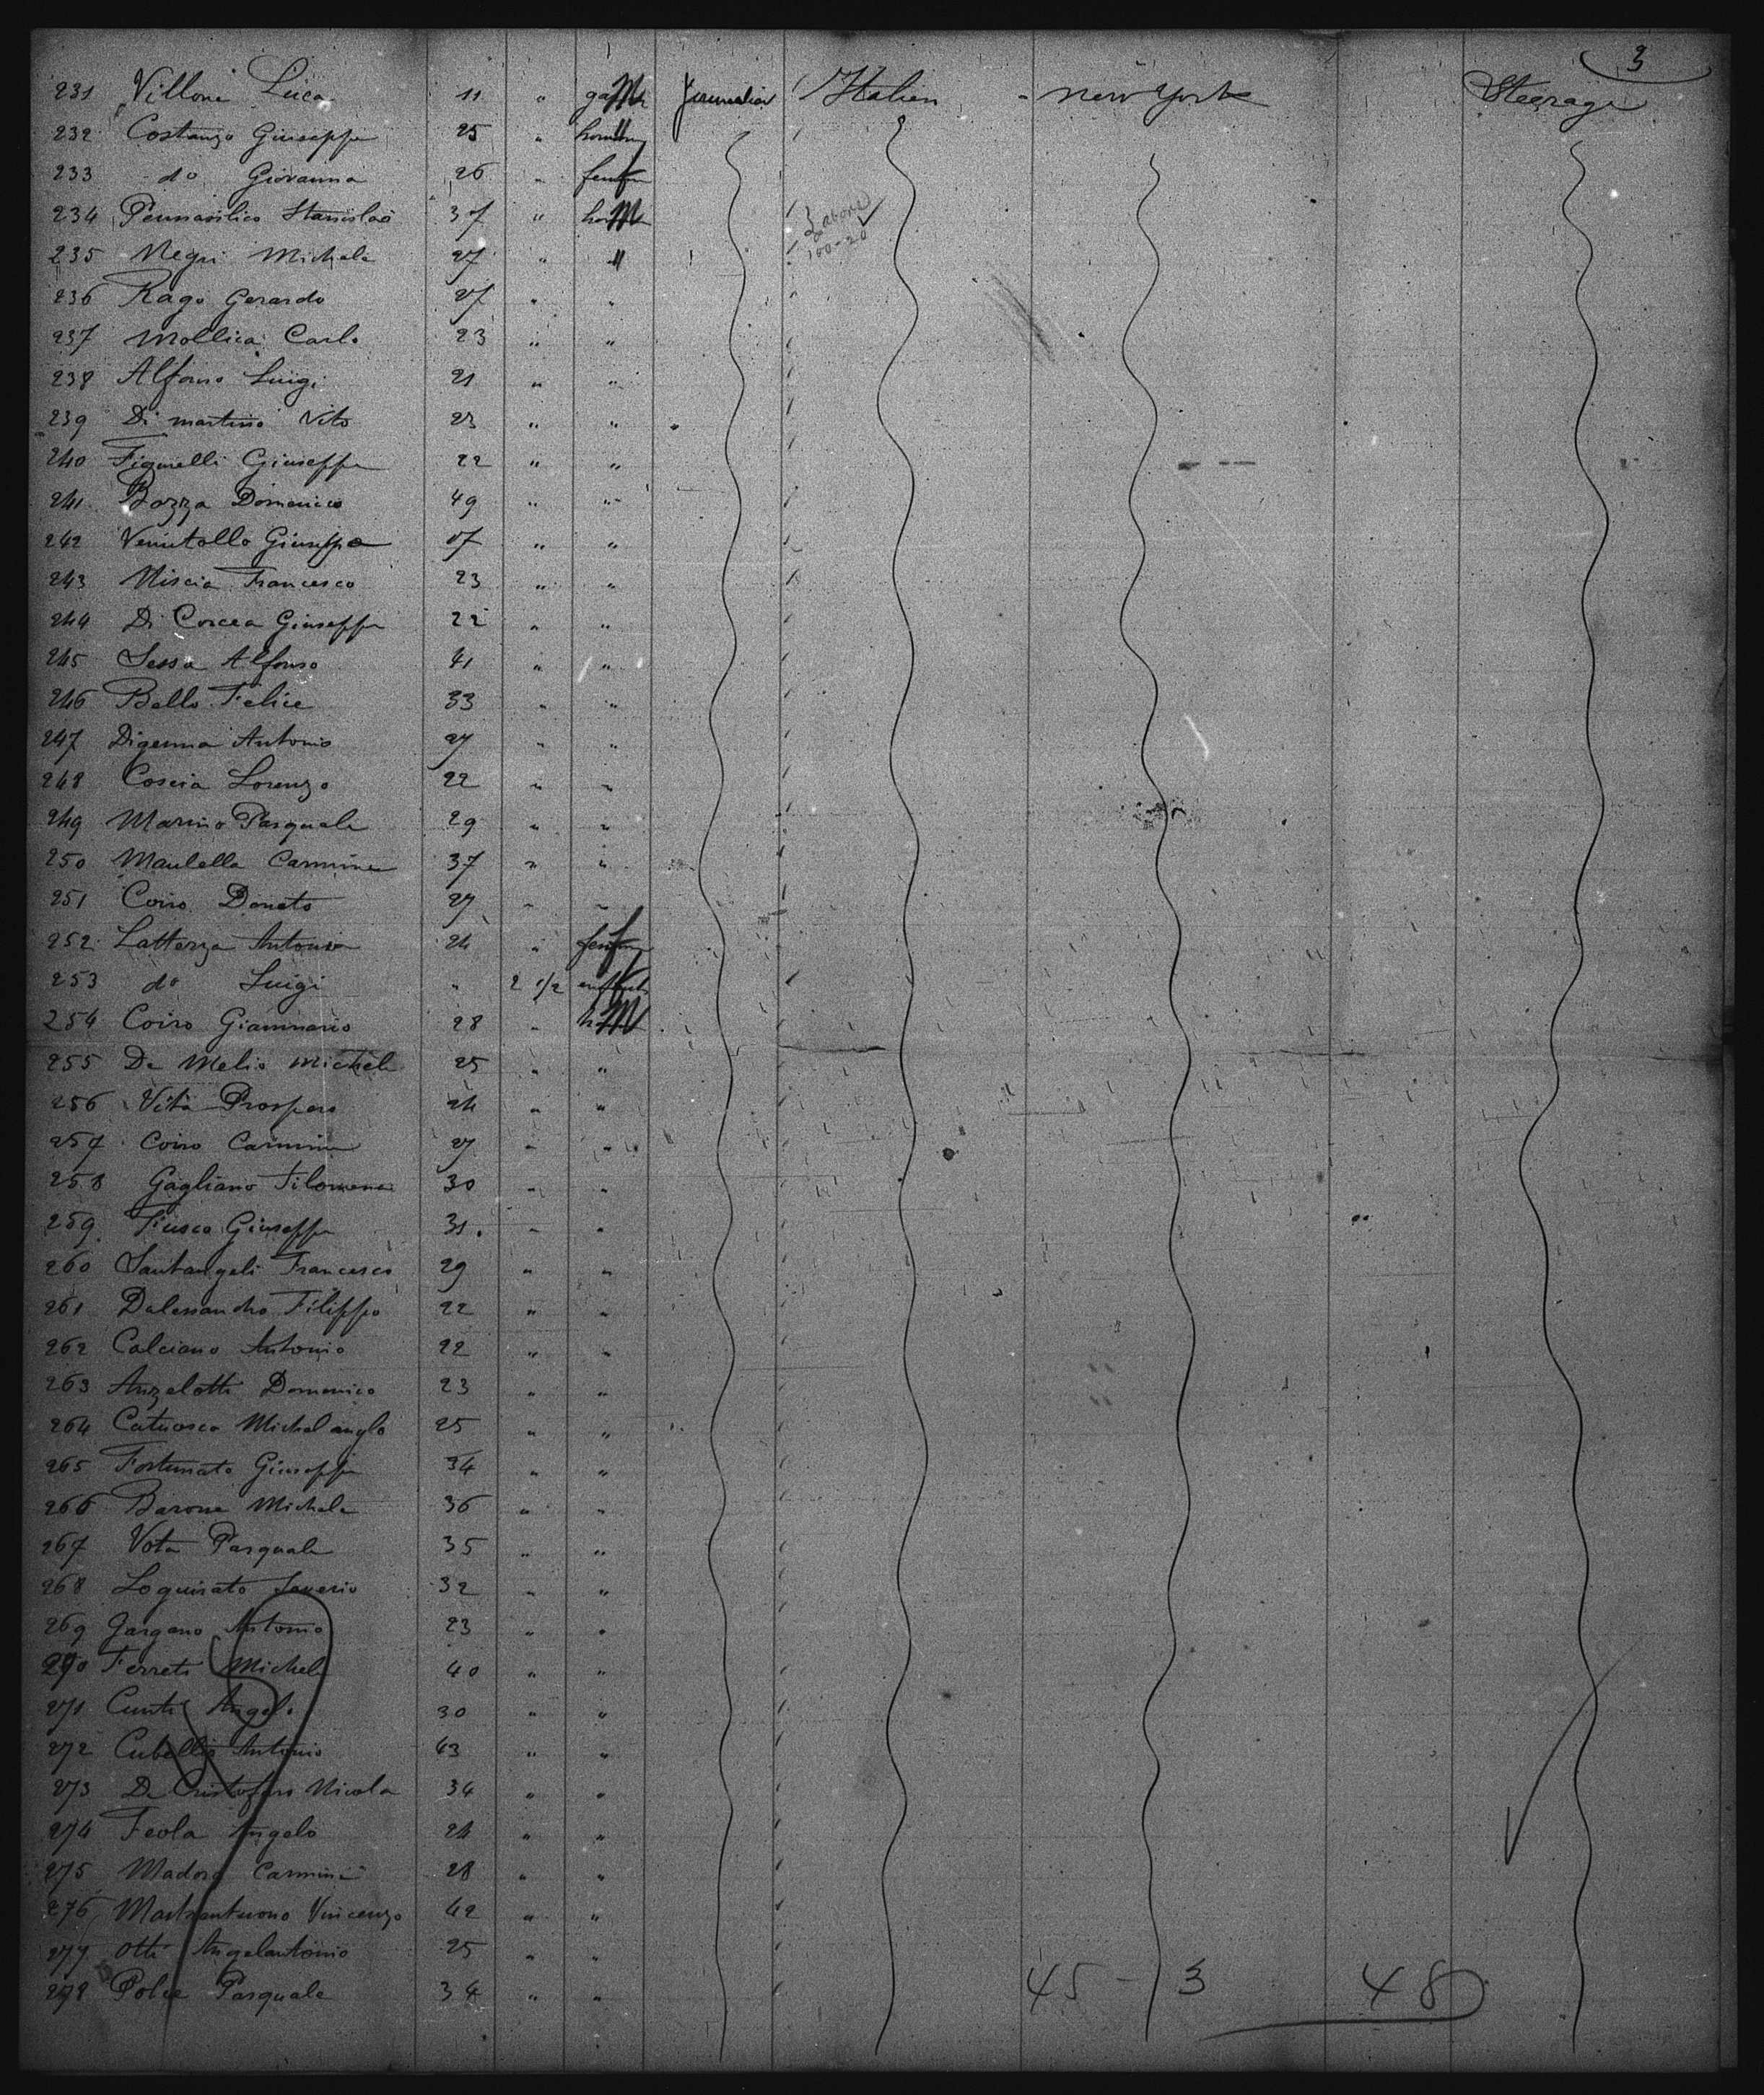 3
231 Villone Luca 11 " M Journalier Italien - new york Steerage
232 Costanzo Giuseppe 25 "
233 do Giovanna 26 "
234 Pennasilico Stanislao 37 " M
235 Negri Michele 27 " "
Labore
100-20
236 Rago Gerardo 27 " "
237 Mollica Carlo 23 " "
238 Alfonso Luigi 21 " "
239 Di martino Vito 23 " "
240 Figurelli Giuseppe 22 " "
241 Bozza Domenico 49 " "
242 Venutollo Giuseppe 17 " "
243 Miscia Francesco 23 " "
244 Di Coscea Giuseppe 22 " "
245 Sessa Alfonso 41 " "
246 Bello Felice 33 " "
247 Digenna Antonio 27 " "
248 Coscia Lorenzo 22 " "
249 Marino Pasquale 29 " "
250 Maulella Carmine 37 " "
251 Coiro Donato 27 " "
252 Latterza Antonia 24 "
253 do Luigi " 2 1/2
254 Coiro Gianmario 28 " M
255 De Melio Michele 25 " "
256 Vita Prospero 24 " "
257 Coiro Carmine 27 " "
258 Gagliano Filomena 30 " "
259 Fiusco Giuseppe 31 " "
260 Santangeli Francesco 29 " "
261 Dalessandro Filippo 22 " "
262 Calciano Antonio 22 " "
263 Anzelotti Domenico 23 " "
264 Catuosco Michelanglo 25 " "
265 Fortunato Giuseppe 34 " "
266 Barone Michele 36 " "
267 Vota Pasquale 35 " "
268 Loguirato Saverio 32 " "
269 Gargano Antonio 23 " "
270 Ferreti Michele 40 " "
271 Cunti Angelo 30 " "
272 Cubellis Antonio 43 " "
273 De Cristofaro Nicola 34 " "
274 Feola Angelo 24 " "
275 Madoro Carmine 28 " "
276 Mastrantuono Vincenzo 42 " "
277 Otti Angelantonio 25 " "
278 Polce Pasquale 34 " "
45 - 3 48